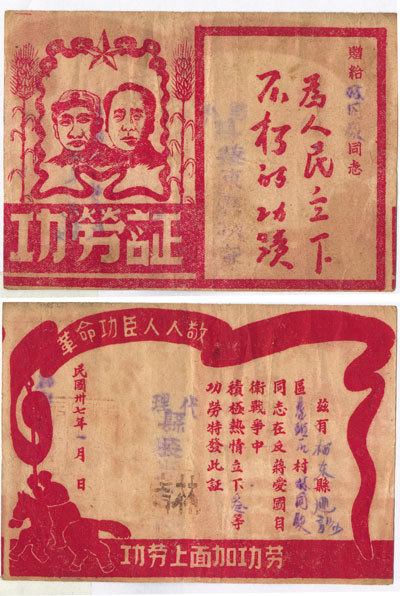 贈給同志
為人民立下
不朽的功蹟
功勞証
革命功臣人人敬
茲有縣
區村
同志在反蔣愛國自
衛戰爭中
積極熱情立下等
功勞特發此証
代理縣
民國卅七年一月 日
功勞上面加功勞